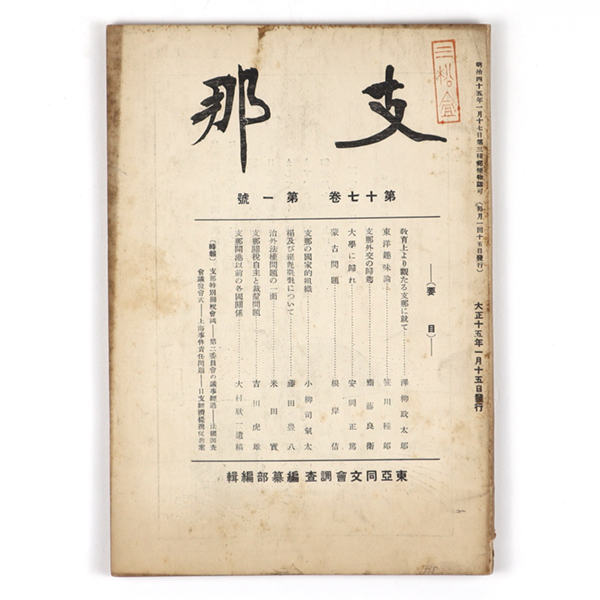 支那
三松壹
明治四十五年一月十七日第三種郵便物認可（毎月一回十五日發行）
大正十五年一月十五日發行
第十七卷 第一號
（要目）
教育上より觀たる支那に就て 澤柳政太郎
東洋趣味論 笹川種郎
支那外交の歸趨 齋藤良衛
大學に歸れ 安岡正篤
蒙古問題 根岸佶
支那の國家的組織 小柳司氣太
藤田豊八
治外法權問題の一面 米田實
支那關稅自主と裁釐問題 吉田虎雄
支那開港以前の各國關係 大村欣一遺稿
（時報） 支那特別關稅會議—第二委員會の議事經過—法權調査
會議發會式—上海事件責任問題
東亞同文會調查編纂部編輯